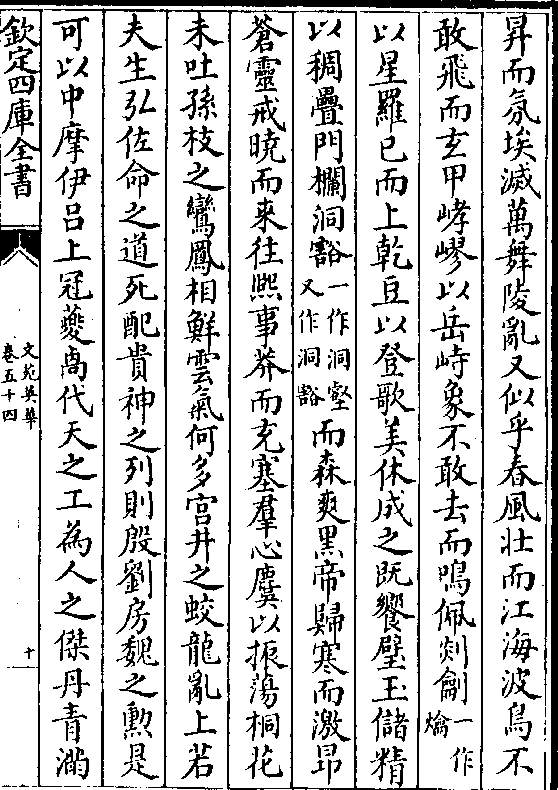 昇而氛埃滅萬舞陵亂又似乎春風壯而江海波鳥不
敢飛而玄甲崢嵺以岳峙象不敢去而鳴佩剡劎一作爚
以星羅已而上乾豆以登歌美休成之既饗璧玉儲精
以稠疊門欄洞豁一作洞壑又作洞谽而森爽黑帝歸寒而激昂
蒼靈戒曉而來往熙事莽而充塞羣心㒇以振蕩桐花
未吐孫枝之鸞鳳相鮮雲氣何多宫井之蛟龍亂上若
夫生弘佐命之道死配貴神之列則殷劉房魏之勲是
可以中摩伊吕上冠夔卨代天之工為人之傑丹青滿
欽定四庫全書
文苑英華
卷五十四
十